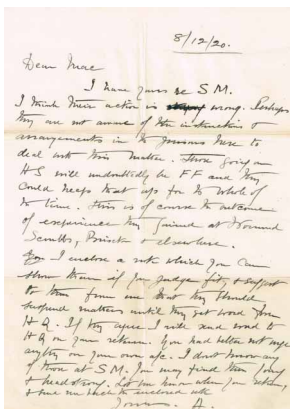 8/12/20.
Dear Mac
I have yours re S M.
I think their action is wrong. Perhaps
they are not aware of the instructions &
arrangements in the prisons here to
deal with this matter. Those going on
HS will undoubtedly be FF and they
could keep that up for the whole of
the time. This is of course the outcome
of experience they gained at Wormwood
Scrubbs, Brixton & elsewhere.
I enclose a note which you can
show them if you judge fit, & suggest
to them from me that they should
suspend matters until they get word from
H Q. If they agree I will send word to
H Q on your return. You had better not urge
anything on your own a/c. I dont know any
of those at SM. You may find them young
& headstrong. Let me know when you return,
& send me back the enclosed note
Yours A.